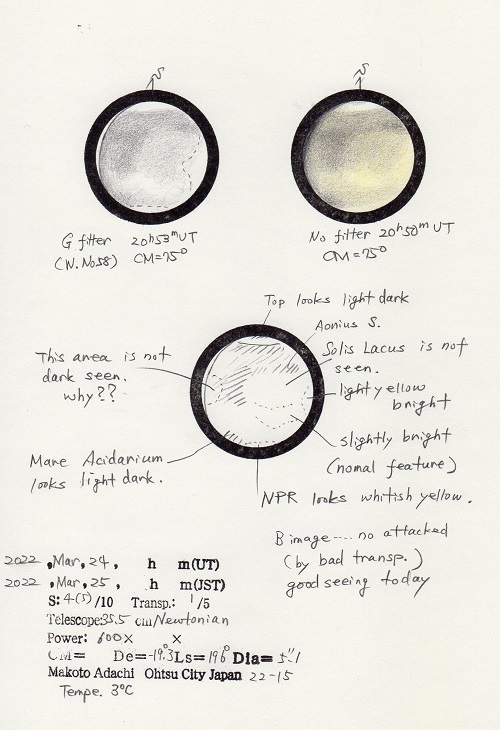 S
S
G filter 20h53m UT
(W. No58) CM=75°
No filter 20h50m UT
CM=75°
Top looks light dark
Aonius S.
Solis Lacus is not
seen.
This area is not
dark seen.
why??
light yellow
bright
slightly bright
(nomal feature)
Mare Acidarium
looks light dark.
NPR looks whitish yellow.
B image---- no attacked
(by bad transp.)
good seeing today
2022, Mar, 24, h m(UT)
2022, Mar, 25, h m(JST)
S: 4(5)/10 Transp.: 1/5
Telescope: 35.5 cm Newtonian
Power: 600× ×
CM= De=-19.3 Ls=196° Dia= 5".1
Makoto Adachi Ohtsu City Japan 22-15
Tempe. 3°C